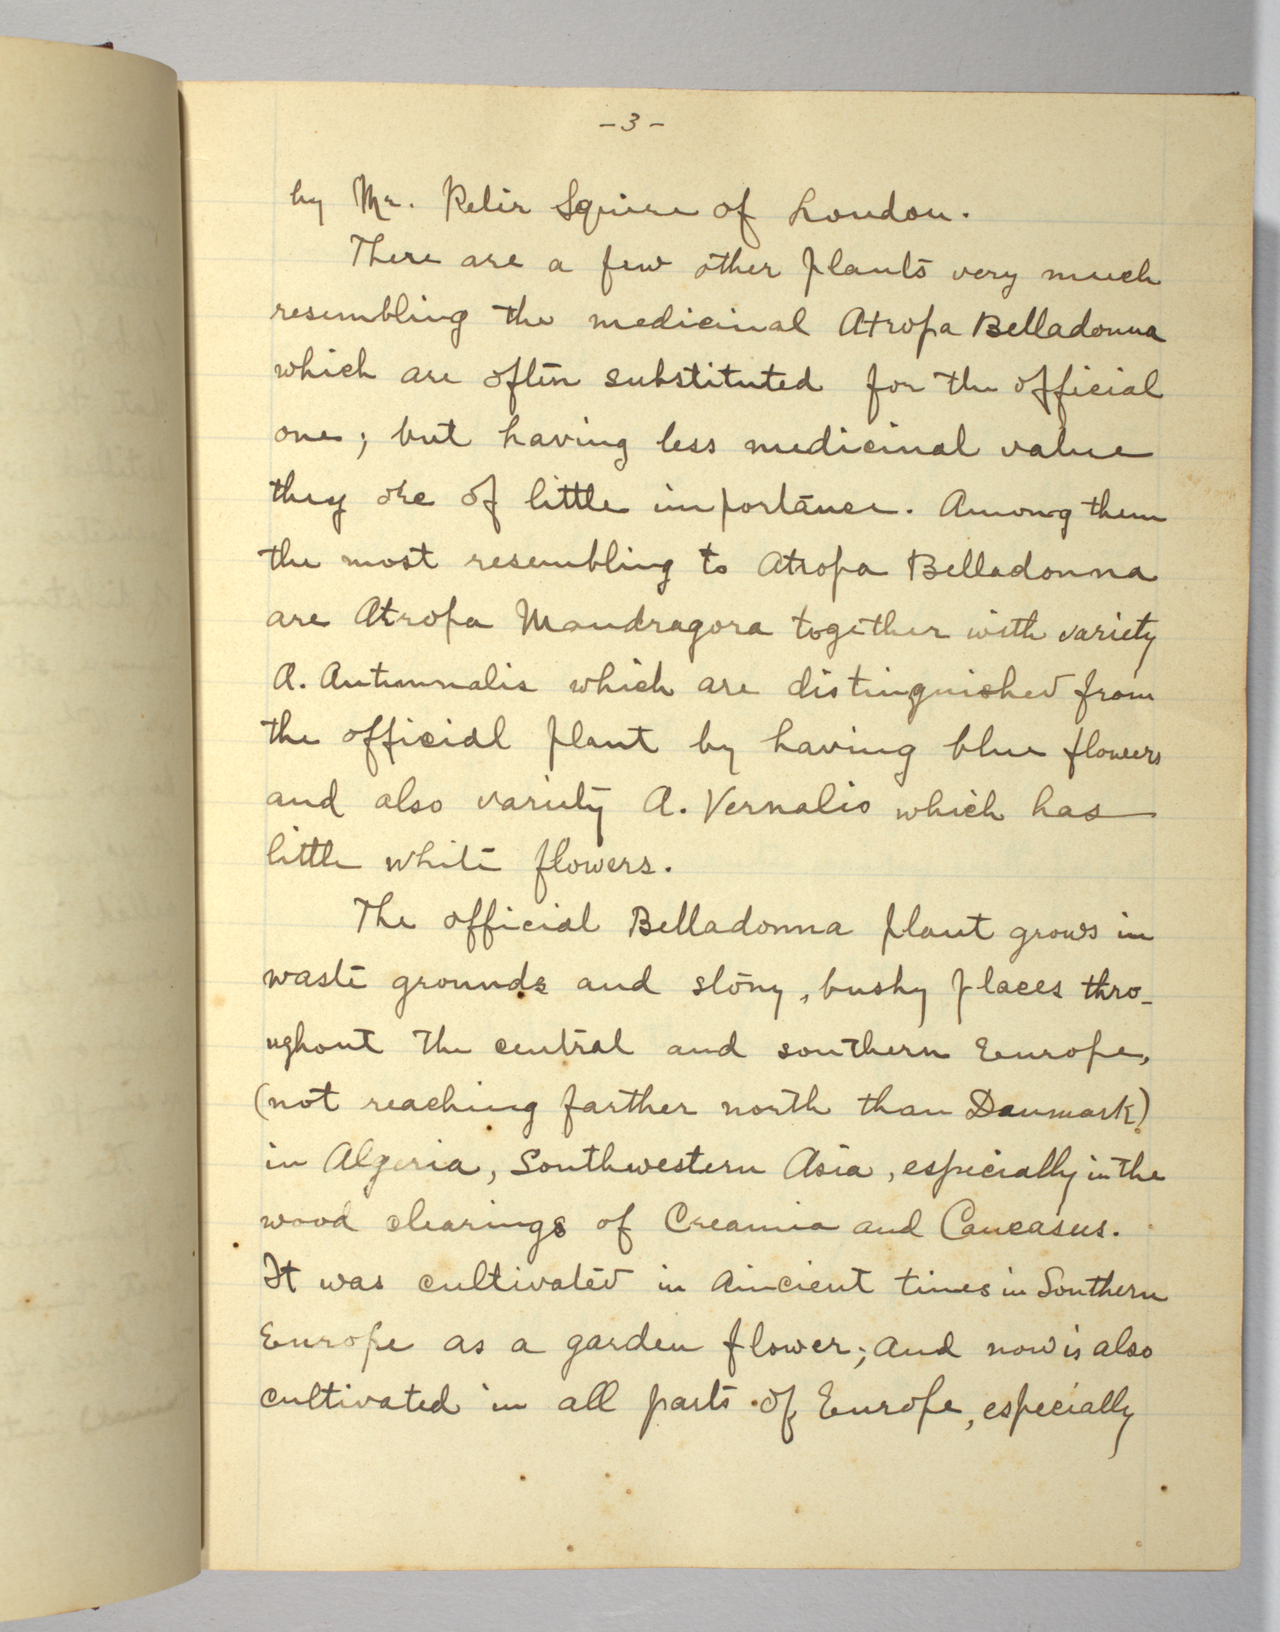 -3-
by Mr. Peter Squire of London.
There are a few other plants very much
resembling the medicinal Atropa Belladonna
which are often substituted for the official
one; but having less medicinal value
they are of little importance. Among them
the most resembling to Atropa Belladonna
are Atropa Mandragora together with variety
A. Autumnalis which are distinguished from
the official plant by having blue flowers
and also variety A. Vernalis which has
little white flowers.
The official Belladonna plant grows in
waste grounds and stony, bushy places thro-
ughout the central and southern Europe,
(not reaching farther north than Danmark)
in Algeria, Southwestern Asia, especially in the
wood clearings of Creamia and Caucasus.
It was cultivated in Aincient times in Southern
Europe as a garden flower; and now is also
cultivated in all parts of Europe, especially